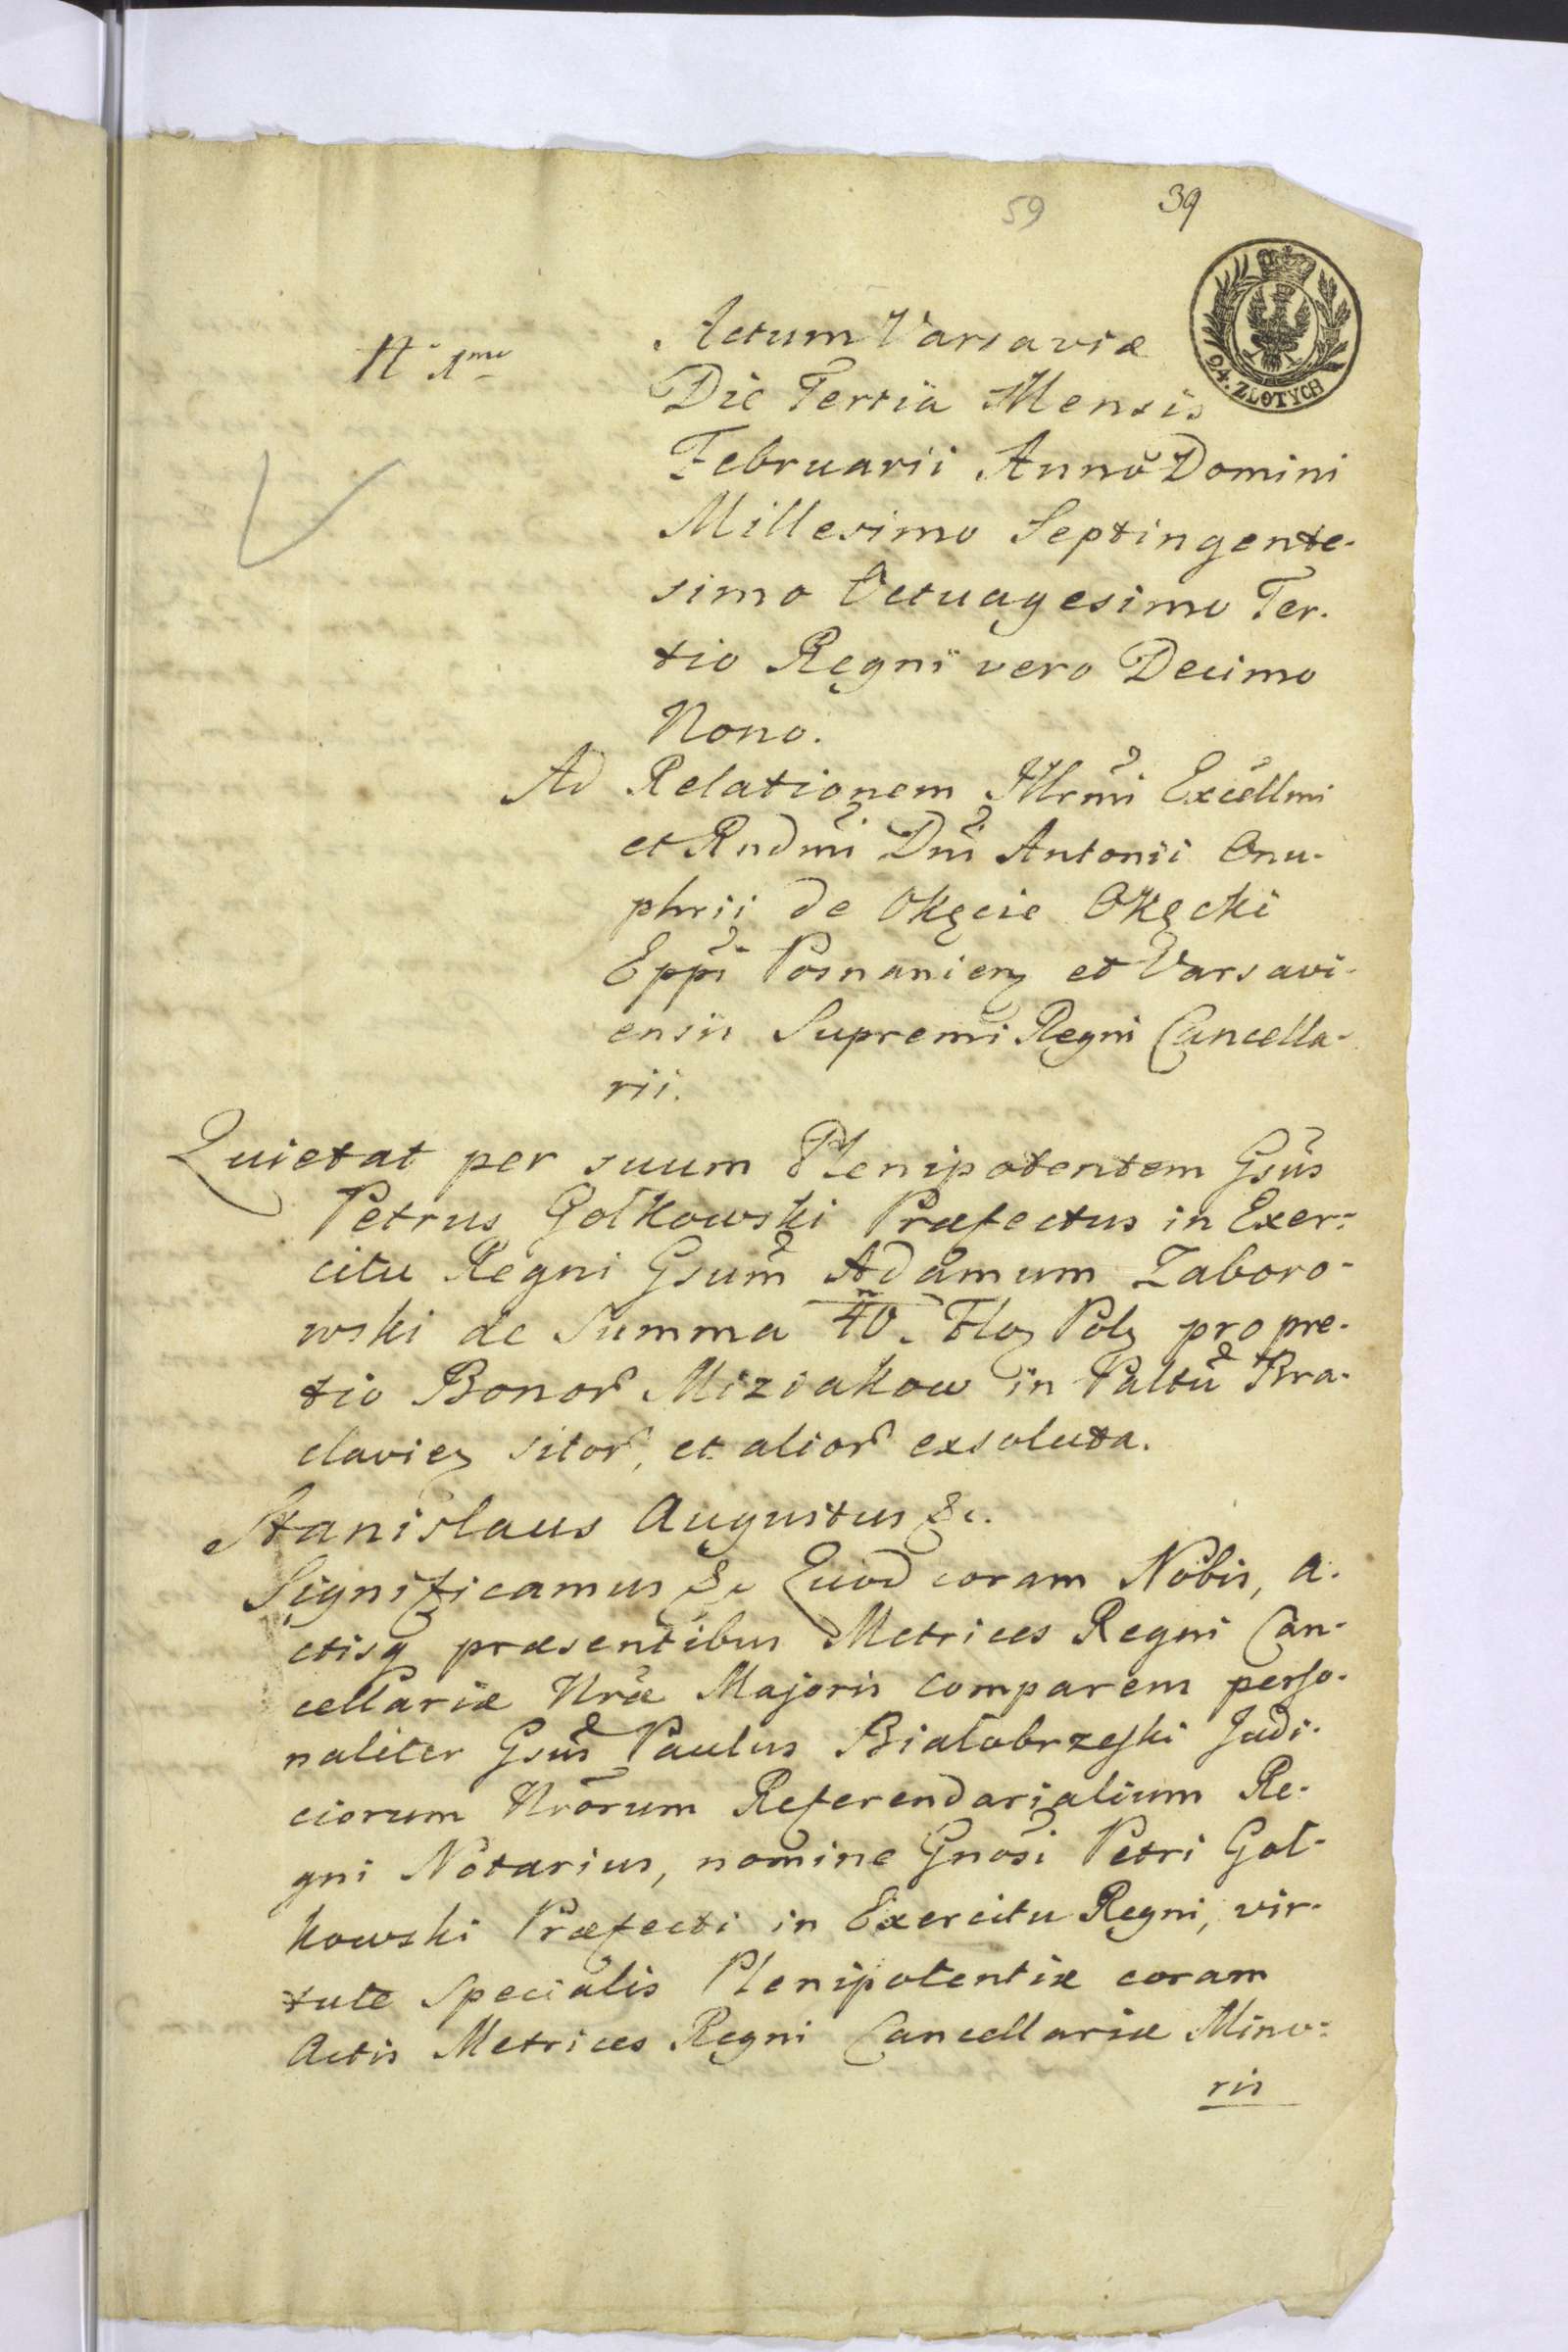 59 39
94. ZŁOTYCH
N° 1mo
Actum Varsaviæ
Die Tertia Mensis
Februarii Anno Domini
Millesimo Septingente-
simo Octuagesimo Ter-
tio Regni vero Decimo
Nono.
Ad Relationem Illrmi Excellmi
et Rndmi Dni Antonii Onu-
phrii de Okęcie Okęcki
Eppi Posnanien et Varsavi-
ensis Supremi Regni Cancella-
rii.
Quietat per suum Plenipotentem Gsus
Petrus Gołkowski Præfectus in Exer-
citu Regni Gsum Adamum Zaboro-
wski de Summa 40. Flo Pol pro pre-
tio Bonor Miziakow in Paltu Bra-
clavien sitor, et alior exsoluta.
Stanislaus Augustus &c.
Significamus &c Quod coram Nobis, a-
ctisq præsentibus Metrices Regni Can-
cellariæ Nræ Majoris comparens perso-
naliter Gsus Paulus Białobrzeski Judi-
ciorum Nrorum Referendarialium Re-
gni Notarius, nomine Gnosi Petri Goł-
kowski Præfecti in Exercitu Regni, vir-
tute specialis Plenipotentiæ coram
Actis Metrices Regni Cancellariæ Mino-
ris